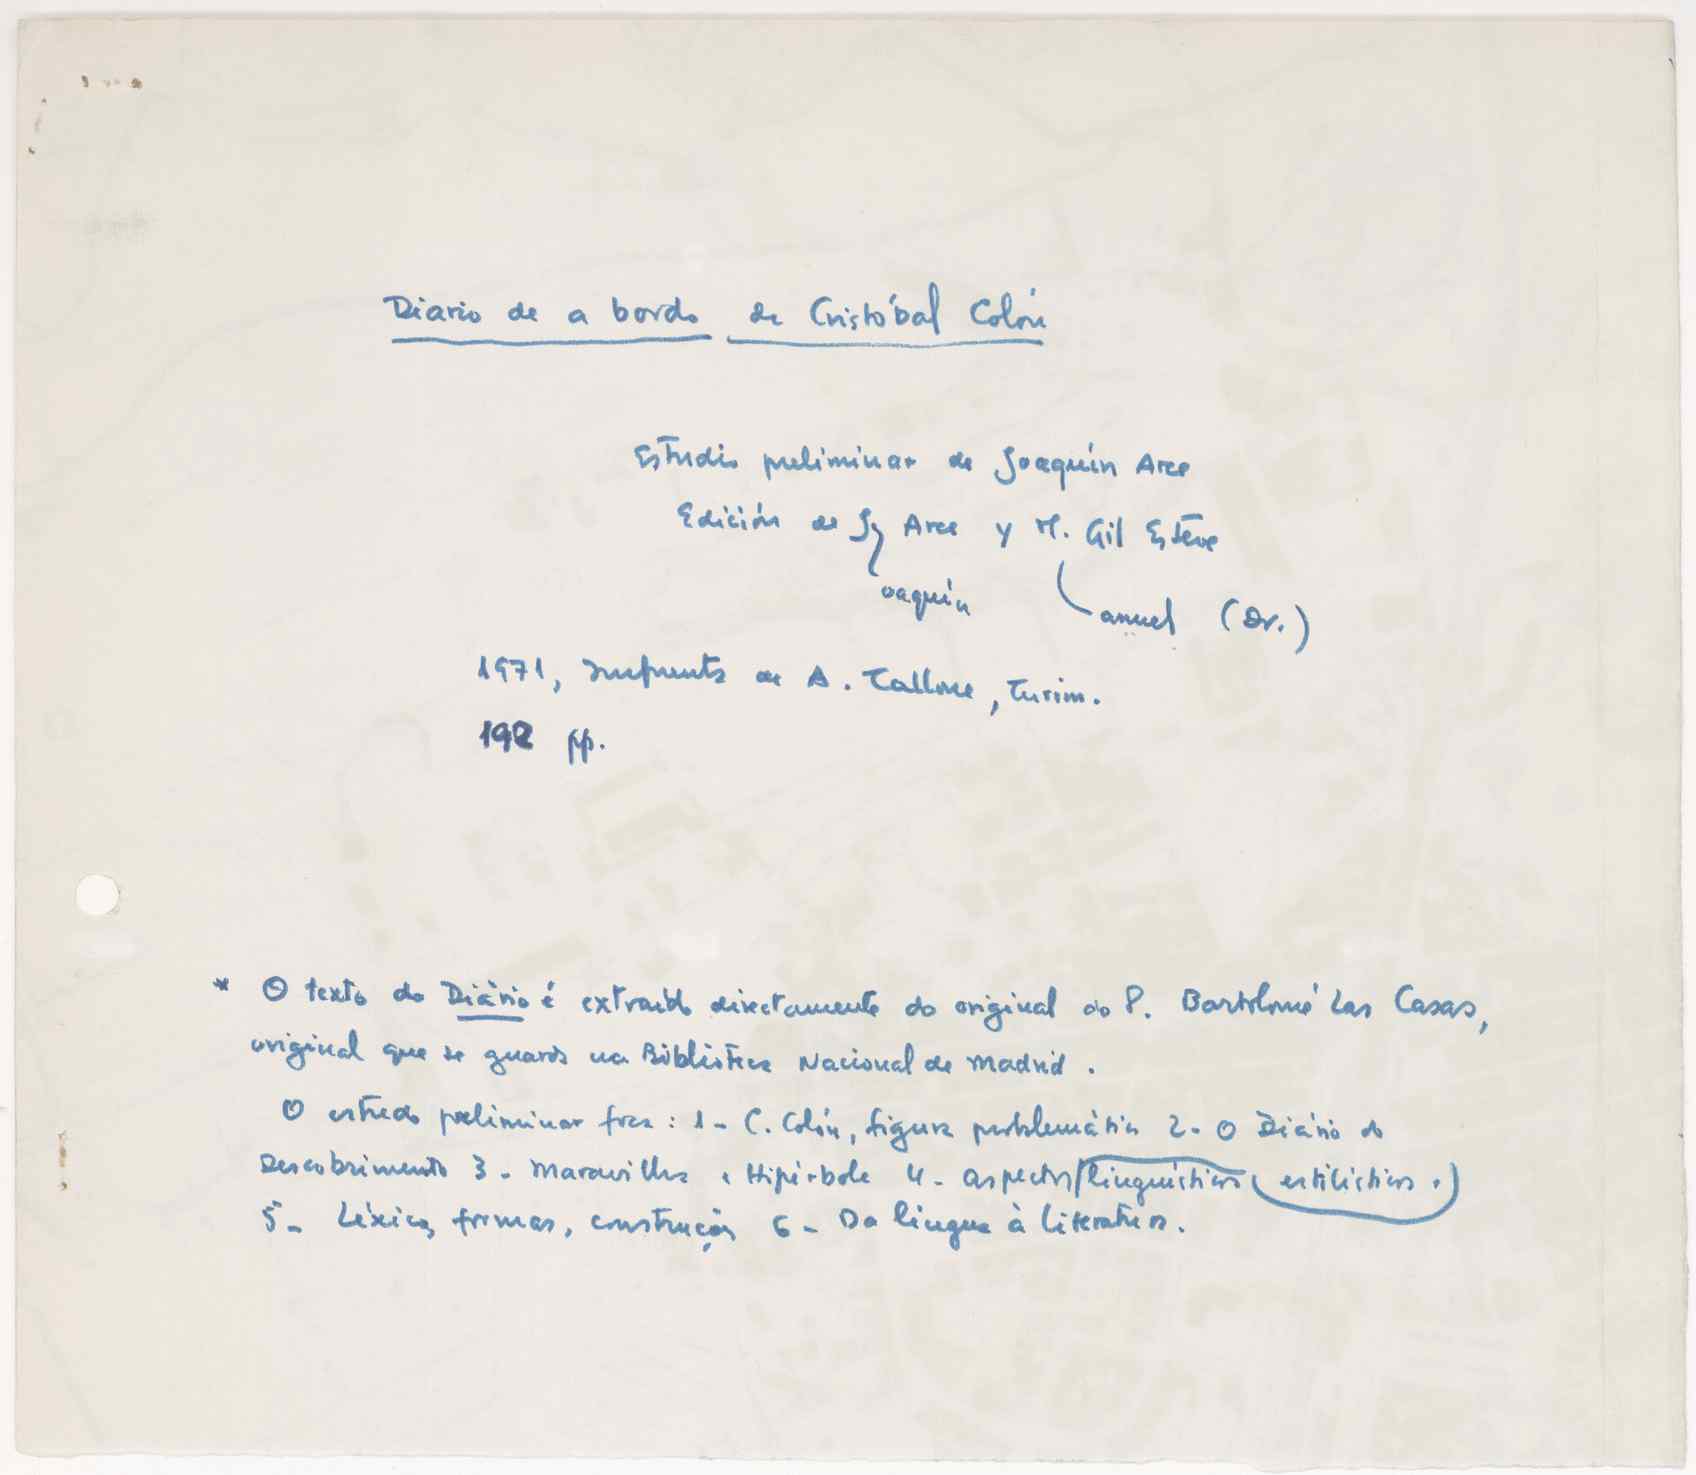 Diario de a bordo de Cristóbal Colón
Estudio preliminar de Joaquín Arce
Edición de J. Arce y M. Gil Esteve
oaquín
anuel (Dr.)
1971, Imprenta de A. Tallone, Turim.
192 pp.
* O texto do Diário é extraído directamente do original do P. Bartolomé Las Casas,
original que se guarda na Biblioteca Nacional de Madrid.
O estudo preliminar foca: 1- C. Colón, figura problemática 2- O Diário do
Descobrimento 3- Maravilha e Hipérbole 4- aspectos linguísticos estilísticos e
5- Léxico, formas, construção 6- Da língua à literatura.